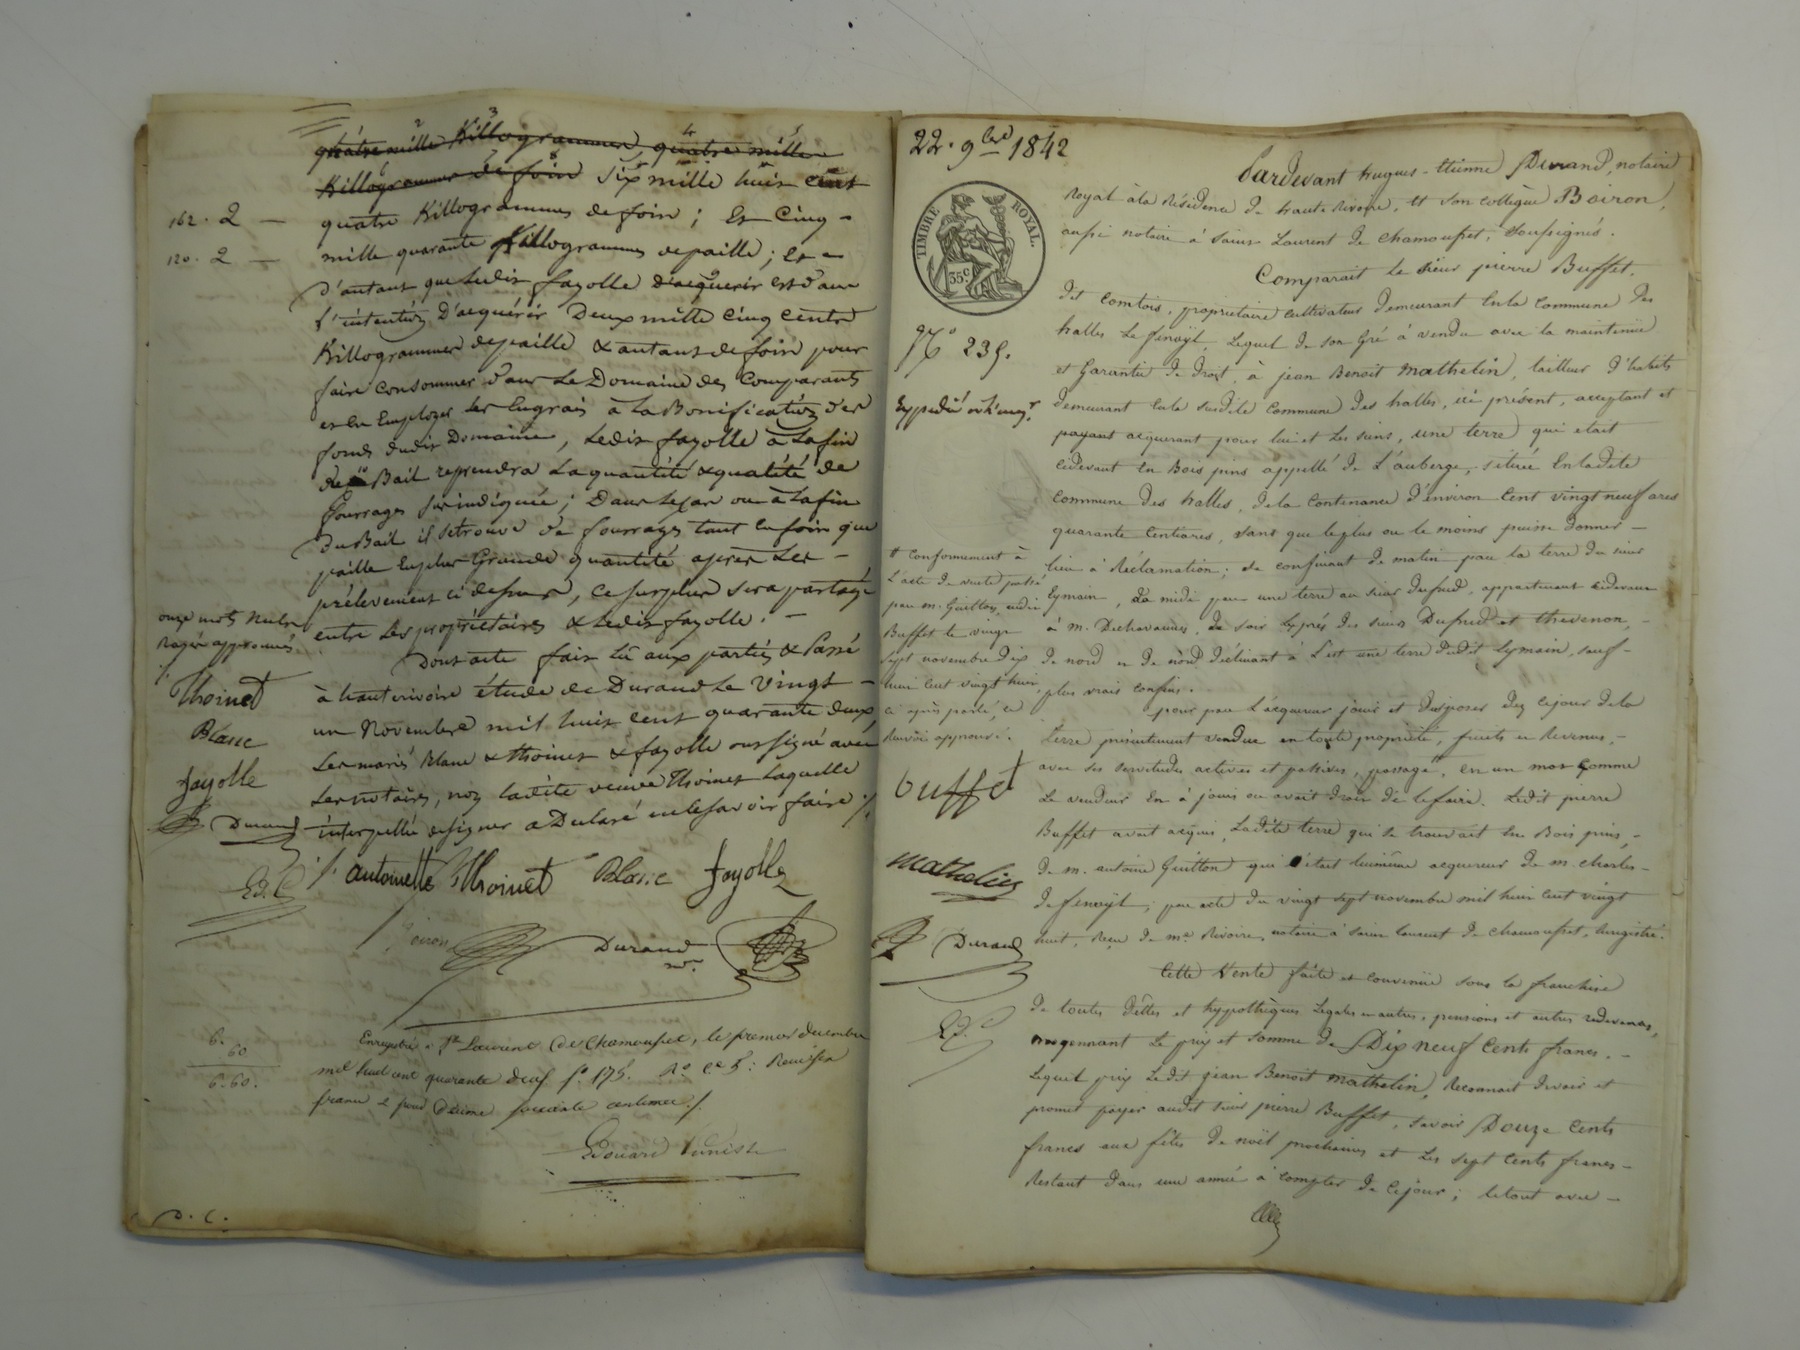 quatre mille Killogrammes, quatre mille
Killogrammes de foin six mille huit cent
162. 2 — quatre Killogrammes de foin ; Et Cinq -
120. 2 — mille quarante Killogrammes de paille ; Et -
D'autant que ledit fayolle d'acquérir est dans
l'intention D'acquérir Deux mille Cinq Cents
Killogrammes de paille & autant de foin pour
faire consommer dans Le Domaine des Comparants
et en Employer les Engrais à La Bonification des
fonds dudit Domaine, ledit fayolle à la fin
de Bail reprendra La quantité & qualité de
fourrages sus indiquée ; Dans le cas ou à la fin
du Bail il se trouve de fourrages tant en foin que
paille En plus Grande quantité après Les -
prélevement ci dessus, ce surplus sera partagé
entre Les propriétaires & Ledit fayolle. -
onze mots nuls
rayés approuvés
Thoinet
Blanc
fayolle
Durand
Dont acte fait lû aux parties & Passé
à hauterivoire étude de Durand Le Vingt -
un Novembre mil huit cent quarante deux,
Les mariés Blanc & Thoinet & fayolle ont signé avec
Les notaires, non ladite veuve Thoinet laquelle
interpellée de signer a Déclaré ne le savoir faire ./.
antoinette Thoinet Blanc fayolle
Durand
6.
60
6.60.
Enregistré à St Laurent de Chamousset, le premier décembre
mil huit cent quarante deux f° 175. R° Ce 5 : Reçu six
francs & pour décime soixante centimes ./.
Edouard
D. C.
22. 9bre 1842
TIMBRE ROYAL.
35c
N° 235.
Expedié
Pardevant hugues - Etienne Durand, notaire
Royal à la Résidence de haute Rivoire, et son collègue Boiron,
aussi notaire à Saint Laurent de chamousset, soussignés.
Comparait le sieur pierre Buffet.
dit comtois, propriétaire cultivateur demeurant en la commune des
halles Le fenoÿl. Lequel de son Gré à vendu avec la maintenüe
et Garantie de droit, à jean Benoit mathelin, tailleur d'habits
demeurant en la susdite commune des halles, ici présent, acceptant et
payant acquerant pour lui et les siens, une terre qui etait
cidevant en Bois pins appellé de L'auberge, située En ladite
commune des halles, de la contenance d'environ Cent vingt neuf ares
quarante Centiares, sans que le plus ou le moins puisse donner -
lieu à Réclamation ; se confinant de matin par la terre du sieur
Eymain, de midi par une terre au sieur Dufud, appartenant cidevant
à m. Dechavannes, de soir les prés des sieurs Dufud et thevenon, -
de nord et de nord déclinant à L'est une terre dudit Eymain, sauf -
plus vrais confins.
# conformement à
L'acte de vente passé
par m. Guitton, audit
Buffet le vingt
sept novembre dix
huit cent vingt huit,
ci après parlé, ce
Renvoi approuvé.
buffet
mathelin
Durand
pour par L'acquereur jouir et disposer dez ce jour de la
terre présentement vendue en toute propriété, fruits et Revenus, -
avec ses servitudes actives et passives, passage, en un mot comme
Le vendeur En à joui ou avait droit de le faire. Ledit pierre
Buffet avait acquis Ladite terre qui se trouvait En Bois pins, -
de m. antoine Guitton qui était luimême acquereur de m. charles -
de fenoÿl ; par acte du vingt sept novembre mil huit cent vingt
huit, Reçu de me Rivoire, notaire à saint laurent de chamousset, Enregistré.
Cette Vente faite et convenüe sous la franchise
de toutes dettes et hypothèques Légales ou autres, pensions et autres redevances,
moyennant Le prix et somme de Dix neuf Cents francs. -
Lequel prix Ledit jean Benoit mathelin, Reconnait devoir et
promet payer audit sieur pierre Buffet, savoir Douze Cents
francs aux fêtes de noël prochaines et Les sept Cents francs -
Restant dans une année à compter de ce jour ; le tout avec -